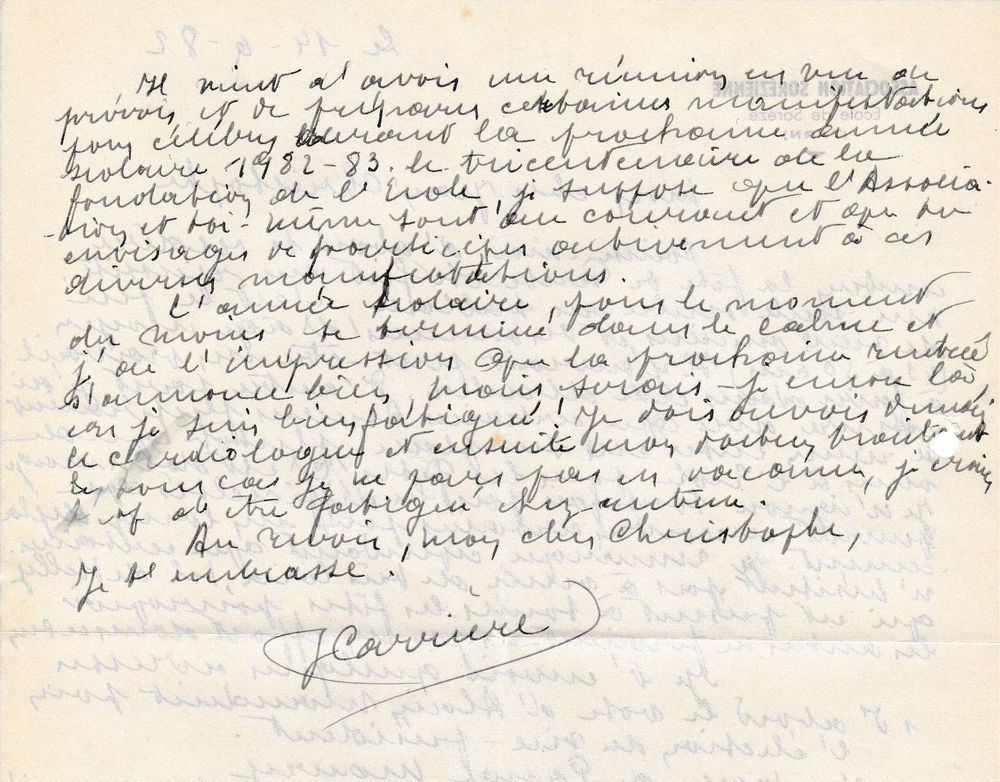 Il vient d'avoir une réunion en vue de
prévoir et de préparer certaines manifestations
pour célébrer durant la prochaine année
scolaire 1982-83. le tricentenaire de la
fondation de l'Ecole, je suppose que l'Associa-
tion et toi-même sont au courant et que tu
envisages de participer activement à ces
diverses manifestations.
L'année scolaire, pour le moment
du moins se termine dans le calme et
j'ai l'impression que la prochaine rentrée
s'annonce bien, mais serais-je encore là,
car je suis bien fatigué! Je dois avoir demain
le cardiologue et ensuite mon docteur traitant
En tous cas je ne pars pas en vacances, je crains
de être fatigué
Au revoir, mon cher Christophe,
Je t'embrasse.
J Carrière